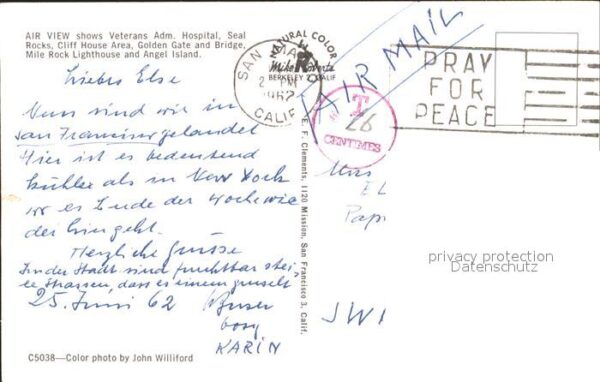 AIR VIEW shows Veterans Adm. Hospital, Seal
Rocks, Cliff House Area, Golden Gate and Bridge,
Mile Rock Lighthouse and Angel Island.
NATURAL COLOR
Mike Roberts
BERKELEY 2, CALIF
SAN
2 PM
1962
CALIF
AIR MAIL
PRAY
FOR
PEACE
T
26
CENTIMES
Liebes Else
Nun sind wir in
San Francisco gelandet
Hier ist es bedeutend
kühler als in New York
wo es Ende der Woche wie
der hingeht.
Herzliche Grüsse
In der Stadt sind furchtbar stei-
le Strassen, dass es einem gruselt
25. Juni 62
KARIN
E. F. Clements, 1120 Mission, San Francisco 3, Calif.
EL
Papi
JWI
privacy protection
Datenschutz
C5038—Color photo by John Williford